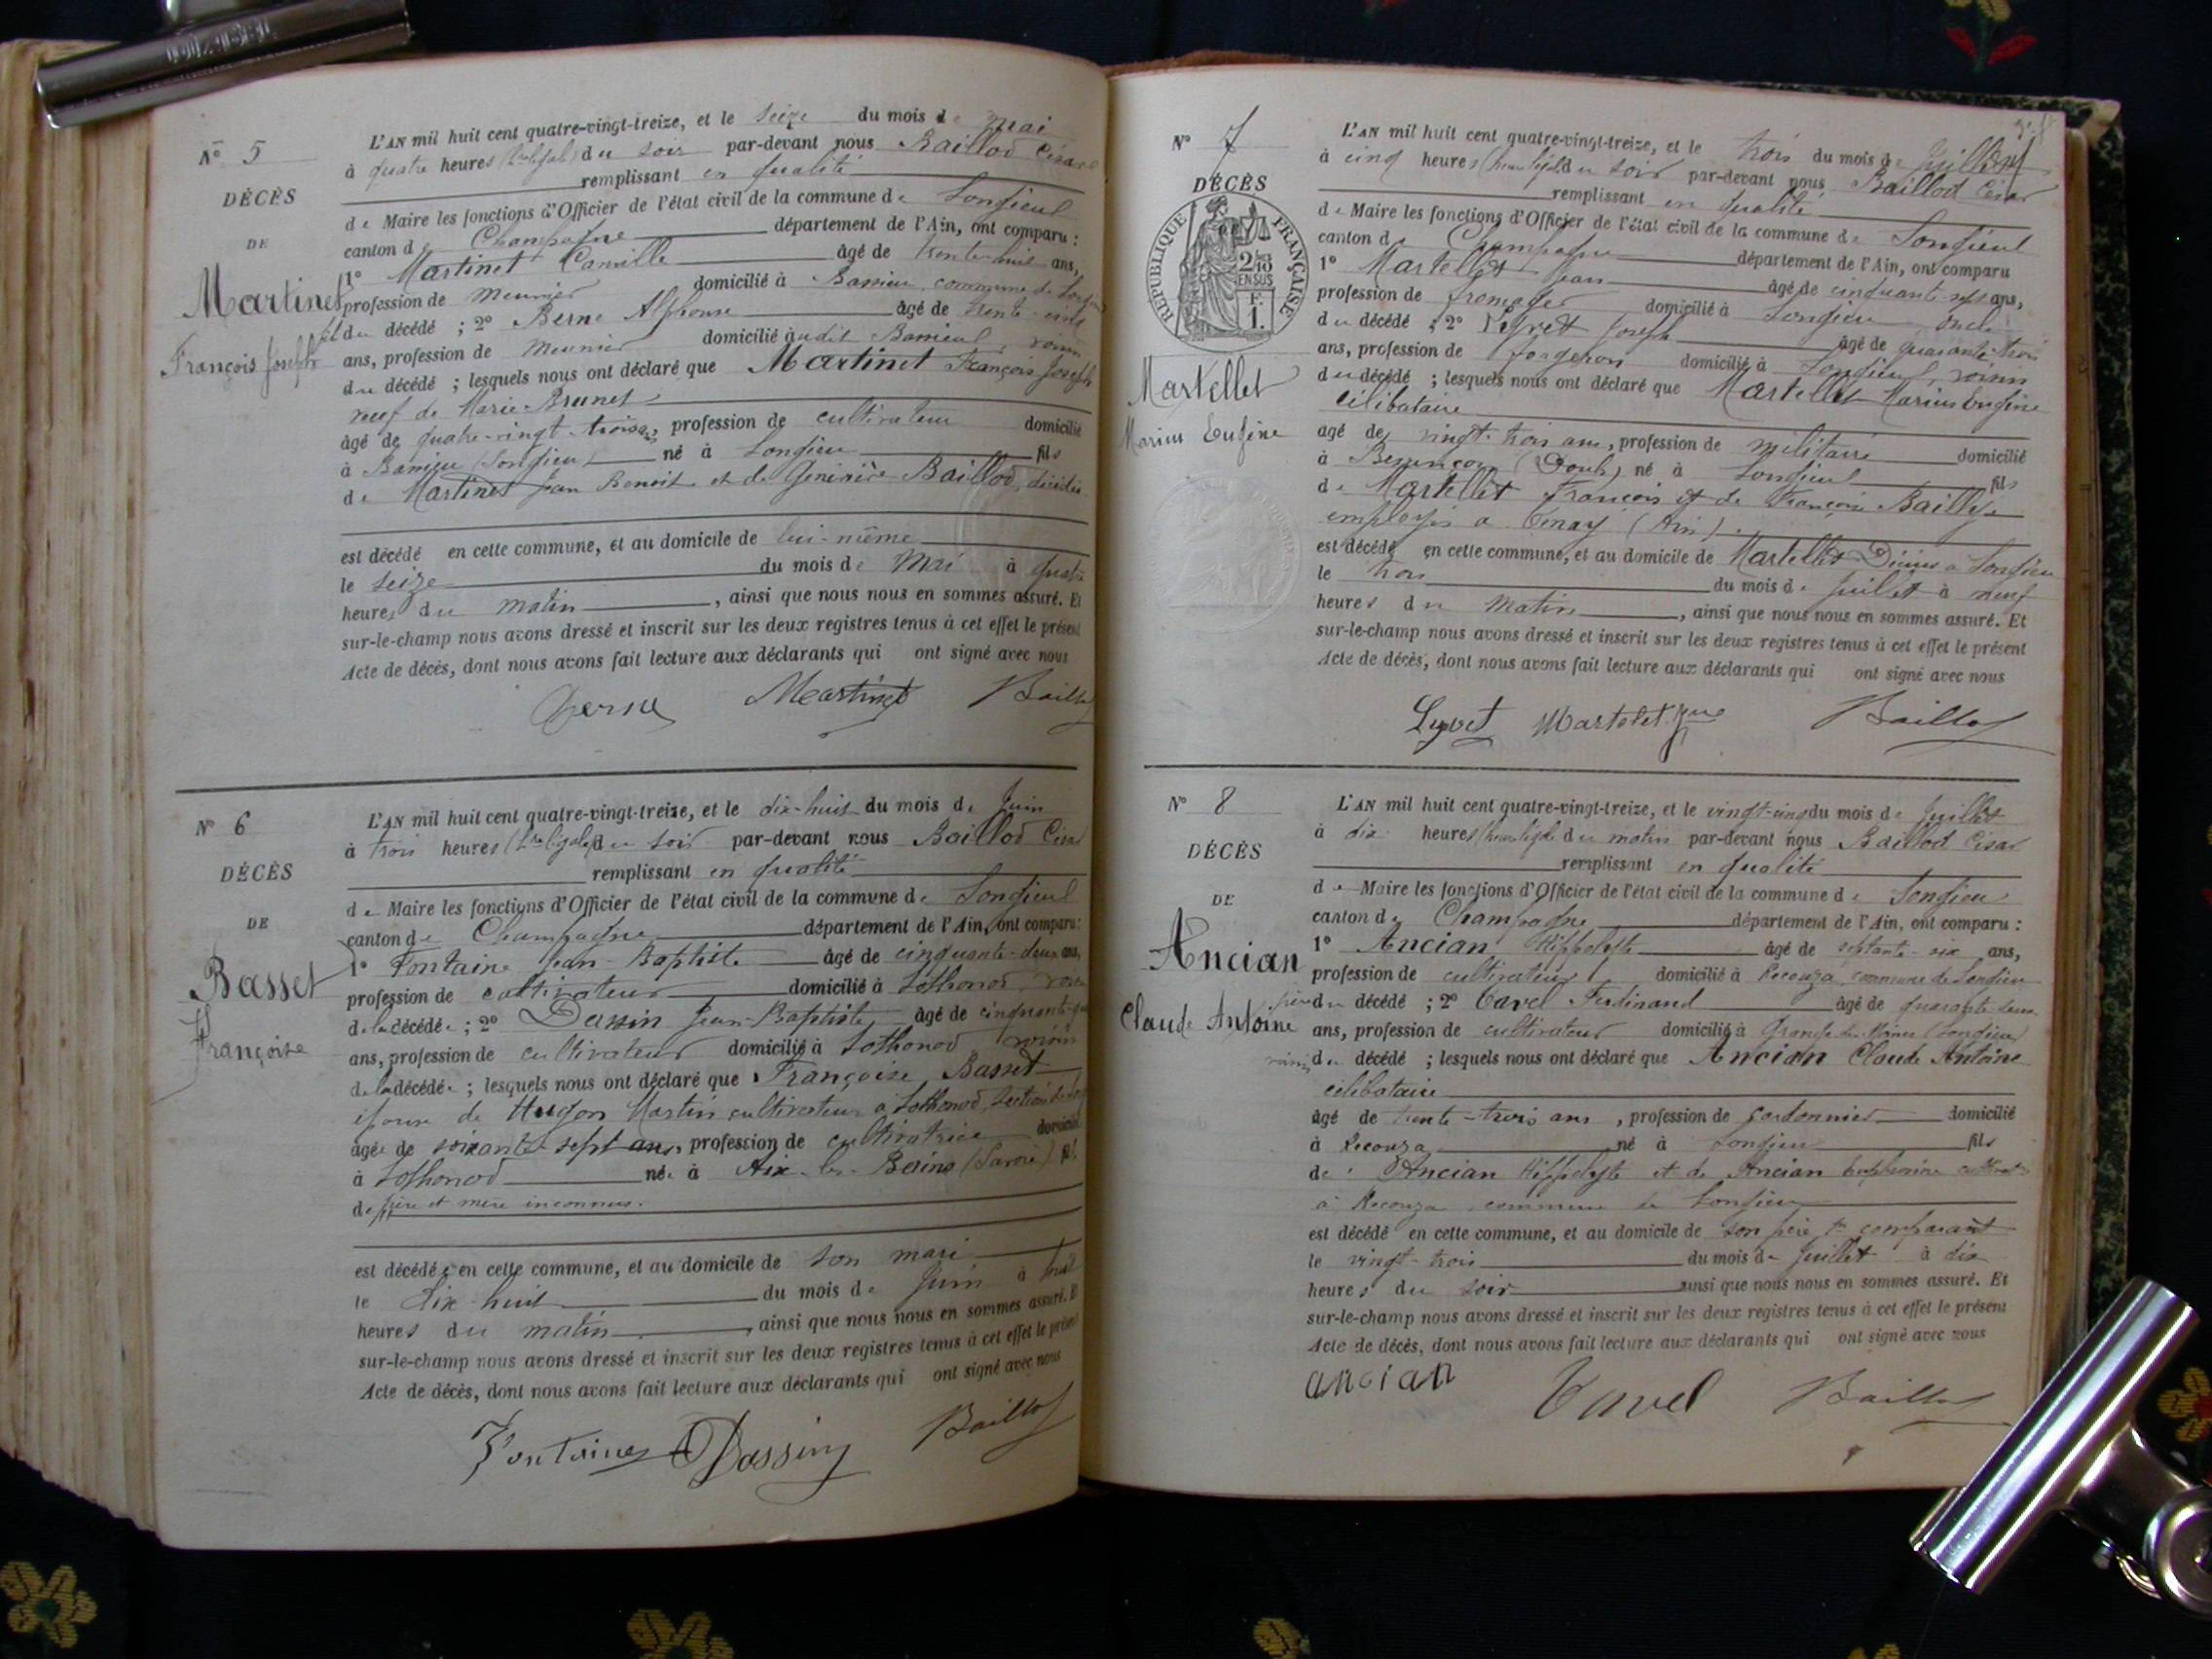 N° 5
DÉCÈS
DE
Martinet
François Joseph
L'AN mil huit cent quatre-vingt-treize, et le seize du mois de mai
à quatre heures (hre légale) du soir par-devant nous Baillod César
remplissant en qualité
de Maire les fonctions d'Officier de l'état civil de la commune de Songieu
canton de Champagne département de l'Ain, ont comparu :
1° Martinet Camille âgé de trente-huit ans,
profession de meunier domicilié à Bassieu, commune de Songieu
fils du décédé ; 2° Berne Alphonse âgé de trente-cinq
ans, profession de meunier domicilié audit Bassieu, voisin
du décédé ; lesquels nous ont déclaré que Martinet François Joseph
veuf de Marie Brunet
âgé de quatre-vingt-trois ans, profession de cultivateur domicilié
à Bassieu (Songieu) né à Songieu fils
de Martinet Jean Benoit et de Baillod, décédés
est décédé en cette commune, et au domicile de lui-même
le seize du mois de Mai à quatre
heures du matin, ainsi que nous nous en sommes assuré. Et
sur-le-champ nous avons dressé et inscrit sur les deux registres tenus à cet effet le présent
Acte de décès, dont nous avons fait lecture aux déclarants qui ont signé avec nous
Berne Martinet Baillod
N° 6
DÉCÈS
DE
Basset
Françoise
L'AN mil huit cent quatre-vingt-treize, et le dix-huit du mois de Juin
à trois heures (hre légale) du soir par-devant nous Baillod César
remplissant en qualité
de Maire les fonctions d'Officier de l'état civil de la commune de Songieu
canton de Champagne département de l'Ain, ont comparu :
1° Fontaine Jean-Baptiste âgé de cinquante-deux ans,
profession de cultivateur domicilié à Sothonod, voisin
de la décédée ; 2° Dassin Jean-Baptiste âgé de cinquante-
ans, profession de cultivateur domicilié à Sothonod voisin
de la décédée ; lesquels nous ont déclaré que Françoise Basset
épouse de Hugon Martin cultivateur à Sothonod, section de
âgée de soixante-sept ans, profession de cultivatrice domicilié
à Sothonod née à Aix-les-Bains (Savoie) fil
de père et mère inconnus.
est décédée en cette commune, et au domicile de son mari
le dix-huit du mois de Juin à huit
heures du matin, ainsi que nous nous en sommes assuré. Et
sur-le-champ nous avons dressé et inscrit sur les deux registres tenus à cet effet le présent
Acte de décès, dont nous avons fait lecture aux déclarants qui ont signé avec nous
Fontaine Dassin Baillod
N° 7
DÉCÈS
RÉPUBLIQUE FRANÇAISE
2/10 EN SUS
F.
1.
Martellet
Marius Eugène
L'AN mil huit cent quatre-vingt-treize, et le trois du mois de Juillet
à cinq heures (heure légale) du soir par-devant nous Baillod César
remplissant en qualité
de Maire les fonctions d'Officier de l'état civil de la commune de Songieu
canton de Champagne département de l'Ain, ont comparu
1° Martellet Jean âgé de cinquante-sept ans,
profession de fromager domicilié à Songieu oncle
du décédé ; 2° Joseph âgé de quarante-trois
ans, profession de forgeron domicilié à Songieu, voisin
du décédé ; lesquels nous ont déclaré que Martellet Marius Eugène
célibataire
agé de vingt-trois ans, profession de militaire domicilié
à Besançon (Doubs) né à Songieu fils
de Martellet François et de Françoise Bailly
employés à Tenay (Ain).
est décédé en cette commune, et au domicile de Martellet à Songieu
le trois du mois de Juillet à neuf
heures du matin, ainsi que nous nous en sommes assuré. Et
sur-le-champ nous avons dressé et inscrit sur les deux registres tenus à cet effet le présent
Acte de décès, dont nous avons fait lecture aux déclarants qui ont signé avec nous
Martelet Baillod
N° 8
DÉCÈS
DE
Ancian
Claude Antoine
L'AN mil huit cent quatre-vingt-treize, et le vingt-cinq du mois de Juillet
à dix heures (heure légale) du matin par-devant nous Baillod César
remplissant en qualité
de Maire les fonctions d'Officier de l'état civil de la commune de Songieu
canton de Champagne département de l'Ain, ont comparu :
1° Ancian Hippolyte âgé de septante-six ans,
profession de cultivateur domicilié à Recouza, commune de Songieu
père du décédé ; 2° Cavel Ferdinand âgé de quarante-deux
ans, profession de cultivateur domicilié à Grange des Moines (Songieu)
voisin du décédé ; lesquels nous ont déclaré que Ancian Claude Antoine
célibataire
âgé de trente-trois ans, profession de cordonnier domicilié
à Recouza né à Songieu fils
de Ancian Hippolyte et de Ancian
à Recouza commune de Songieu
est décédé en cette commune, et au domicile de son père 1er comparant
le vingt-trois du mois de Juillet à dix
heures du soir ainsi que nous nous en sommes assuré. Et
sur-le-champ nous avons dressé et inscrit sur les deux registres tenus à cet effet le présent
Acte de décès, dont nous avons fait lecture aux déclarants qui ont signé avec nous
ancian Cavel Baillod